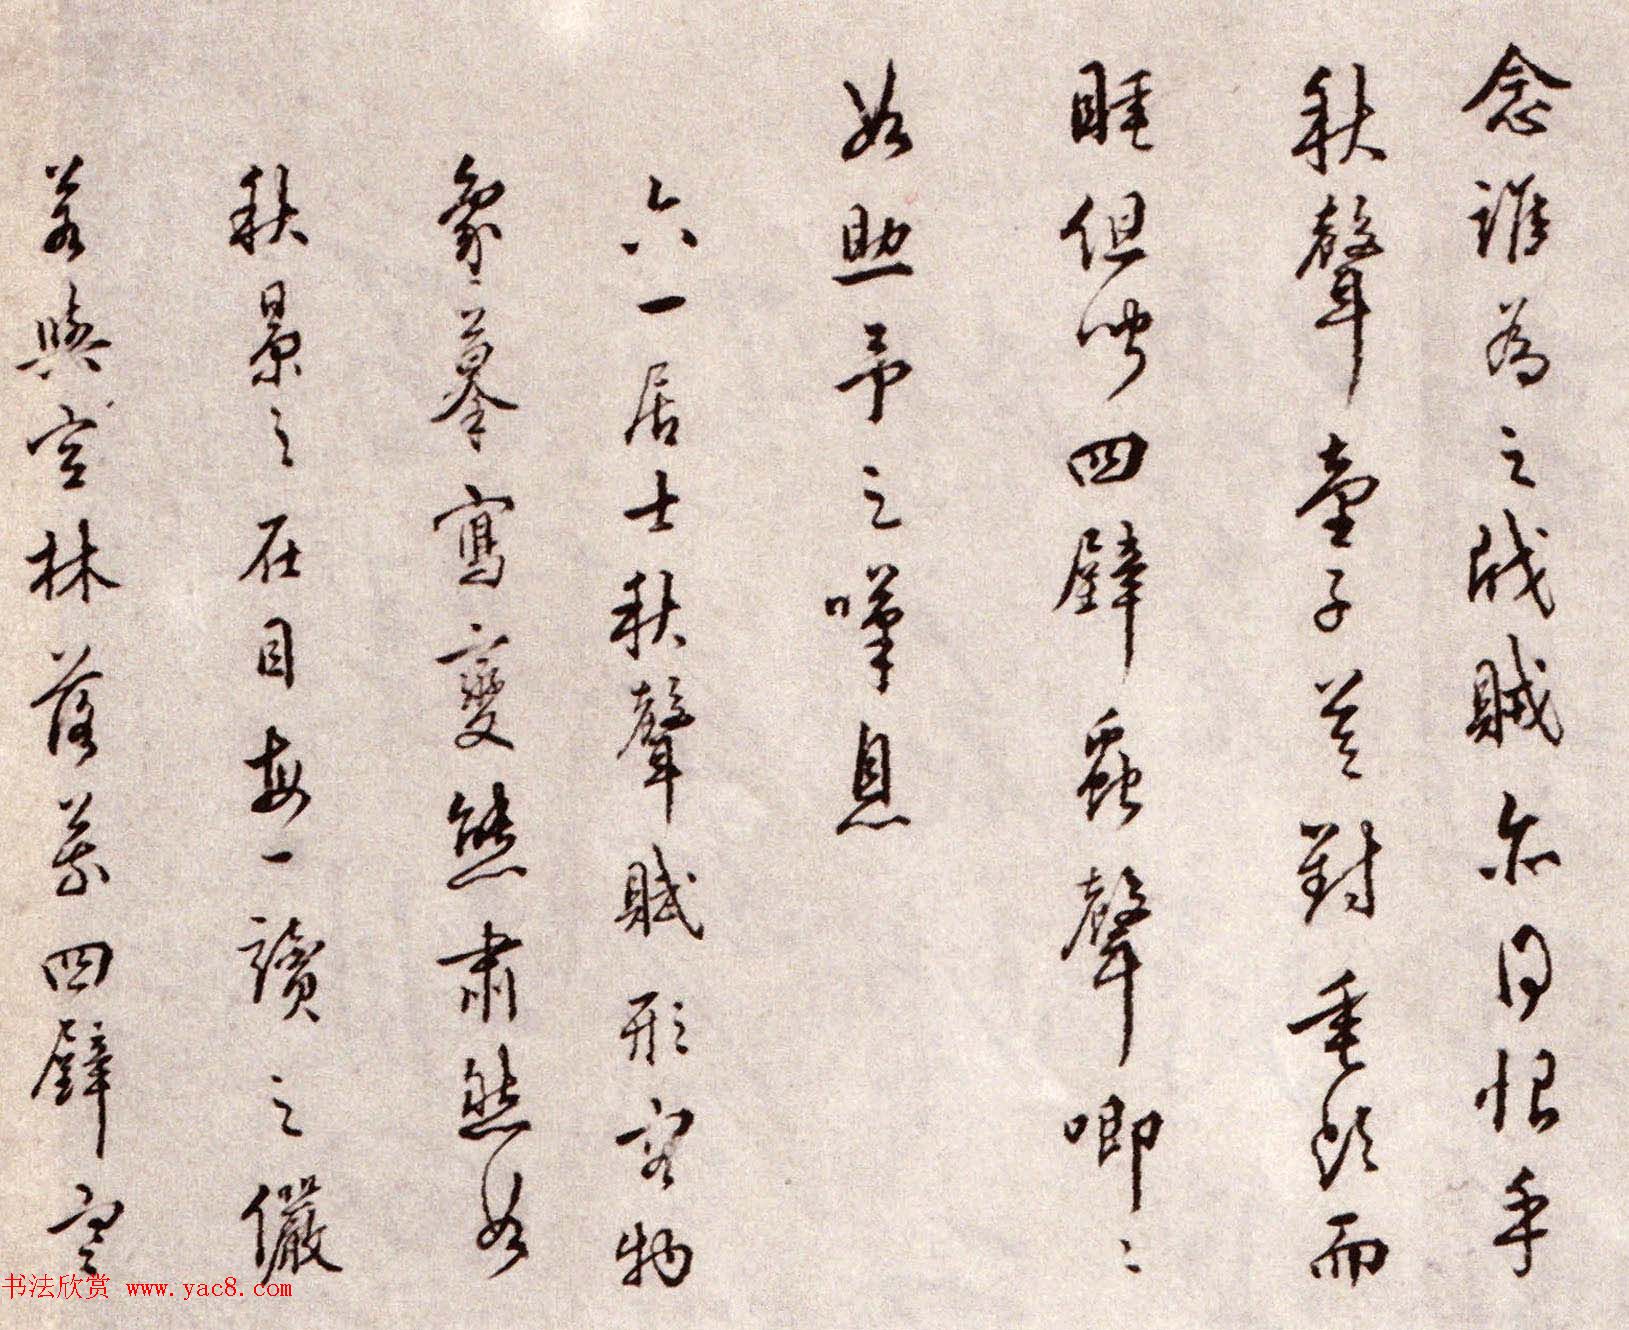 念誰為之戕賊亦何恨乎
秋聲童子莫對垂頭而
睡但聞四壁蟲聲唧〻
如助予之嘆息
六一居士秋聲賦形容物
象摹寫變態肅然如
秋景之在目每一讀之儼
若與空林落葉四壁寒
书法欣赏 www.yac8.com